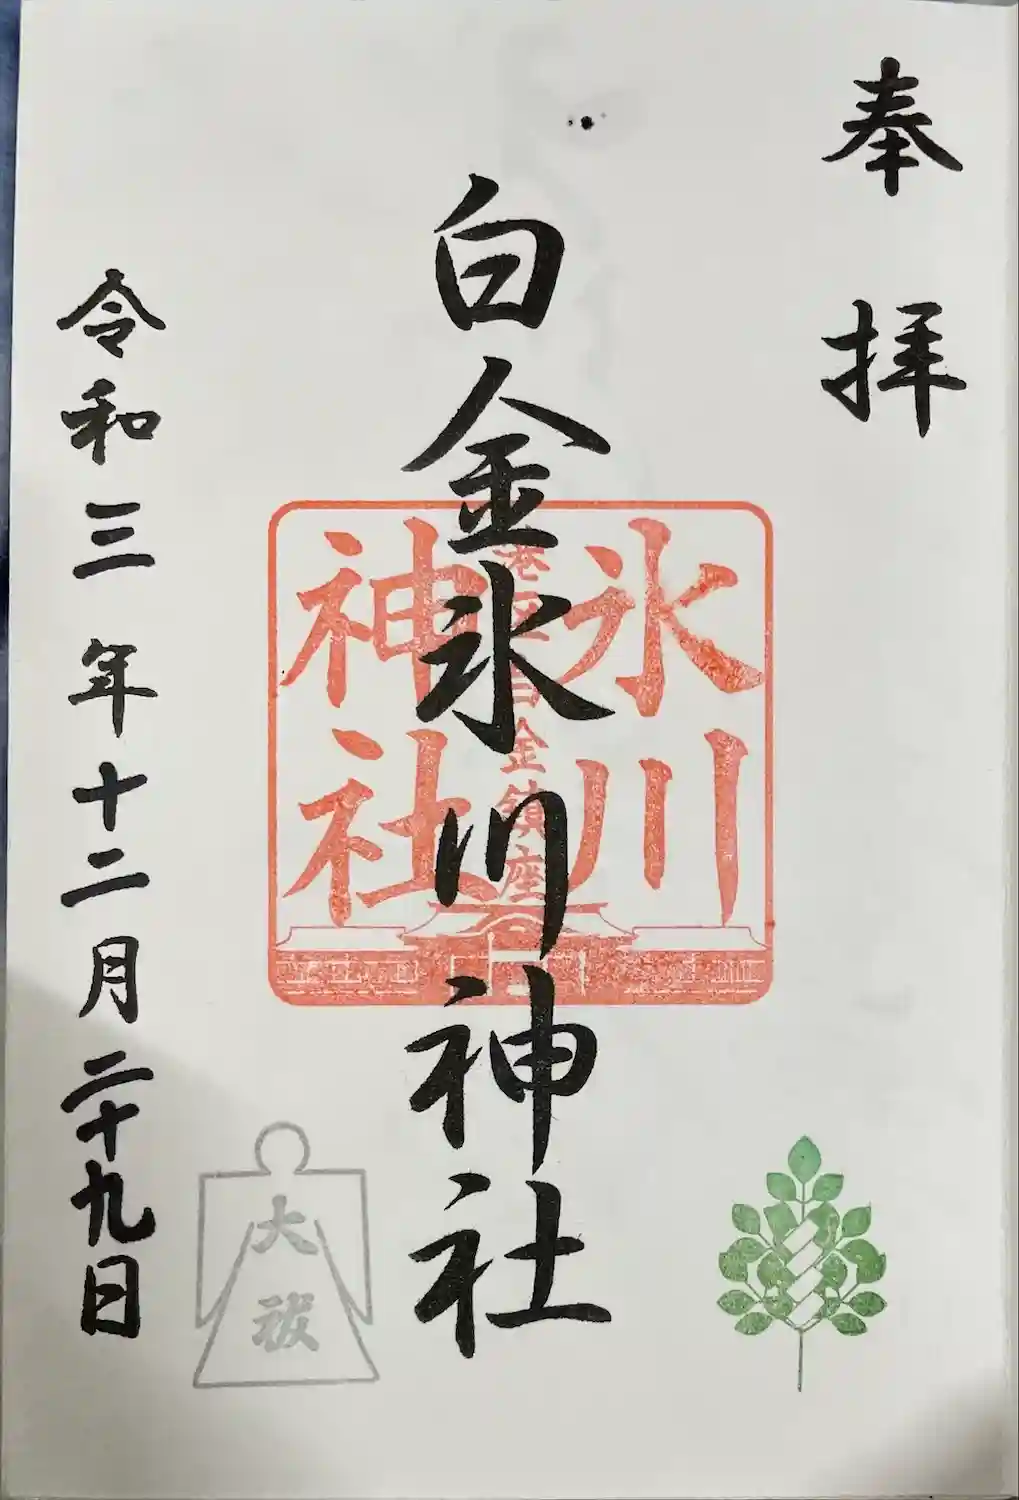 奉拝
白金氷川神社
氷川
港区白金鎮座
神社
大祓
令和三年十二月二十九日